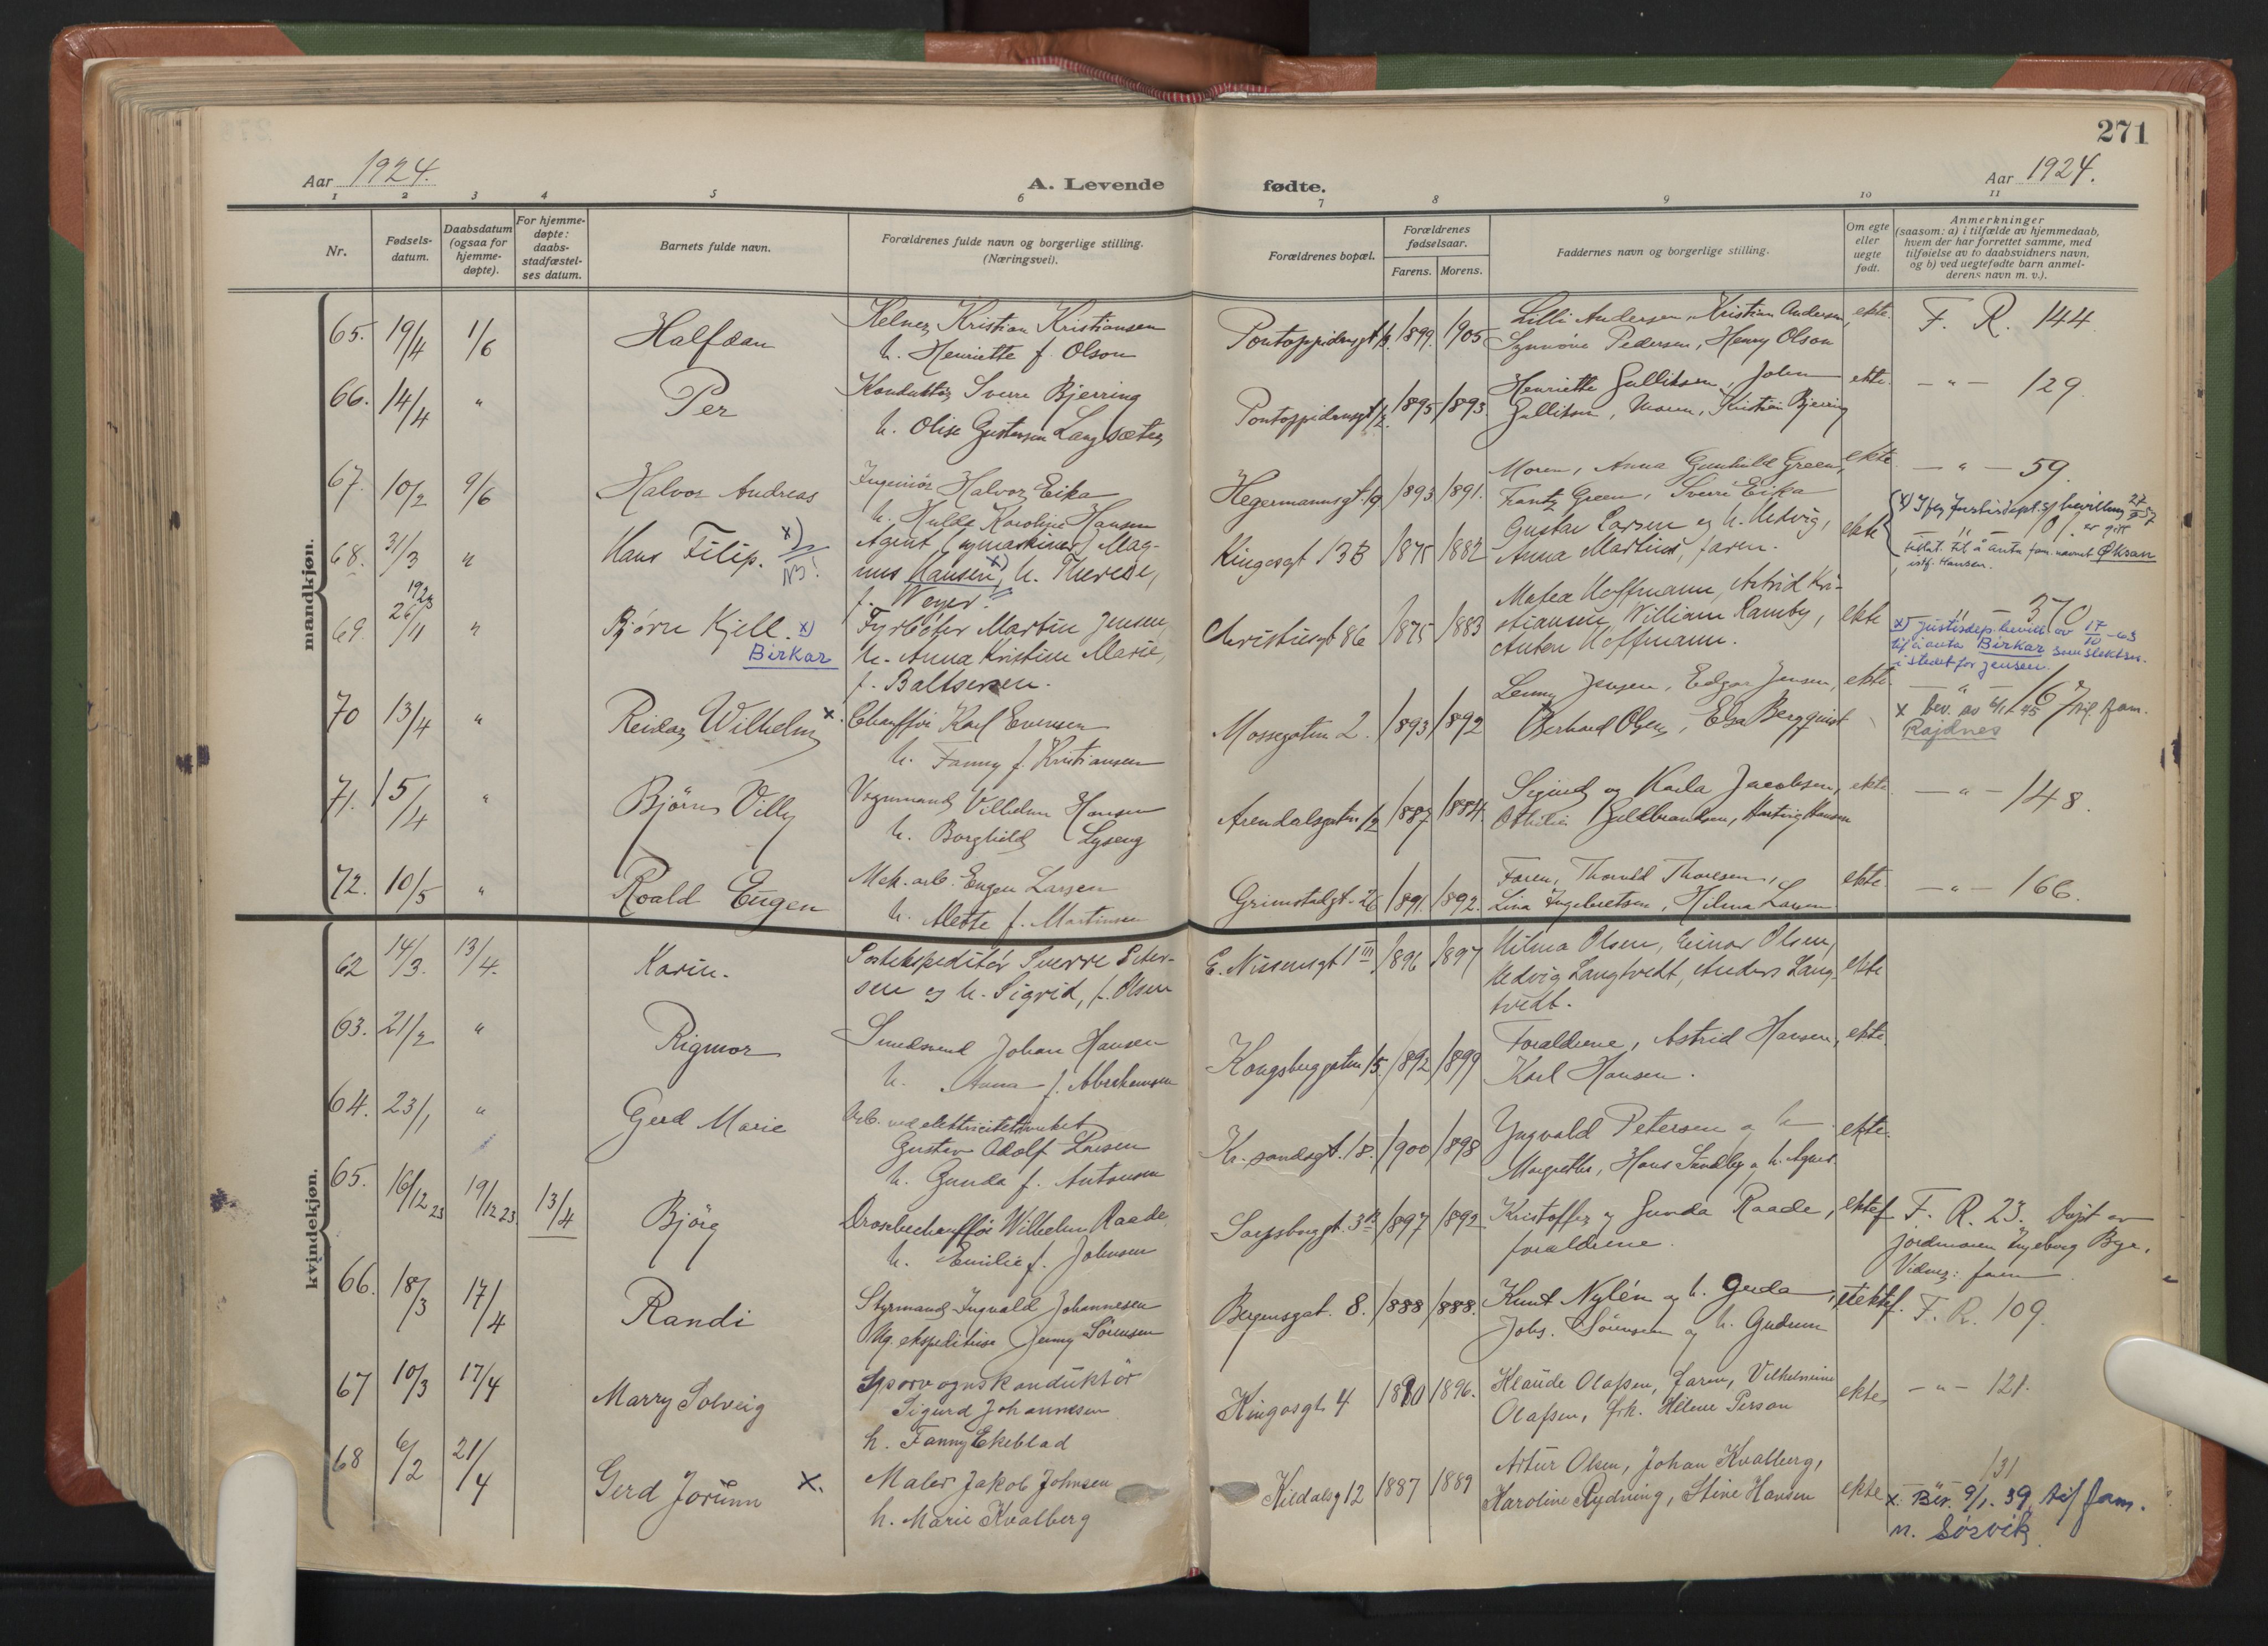 271
Aar 1924.
A. Levende fødte.
Aar 1924.
1 2 3 4 5 6 7 8 9 10 11
Nr.
Fødsels-
datum.
Daabsdatum
(ogsaa for
hjemme-
døpte).
For hjemme-
døpte:
daabs-
stadfæstel-
ses datum.
Barnets fulde navn.
Forældrenes fulde navn og borgerlige stilling.
(Næringsvei).
Forældrenes bopæl.
Forældrenes
fødselsaar.
Farens. Morens.
Faddernes navn og borgerlige stilling.
Om egte
eller
uegte
født.
Anmerkninger
(saasom: a) i tilfælde av hjemmedaab,
hvem der har forrettet samme, med
tilføielse av to daabsvidners navn,
og b) ved uegtefødte barn anmel-
derens navn m. v.).
mandkjøn.
65. 19/4 1/6 Halfdan
Kelner Kristian Kristiansen
h. Henriette f. Olson
Pontoppidansgt 1899. 1905
Lilli Andersen, Kristian Andersen,
Synnöve Pedersen, Henry Olson
ekte. F. R. 144
66. 14/4 " Per
Konduktör Sverre Bjerring
h. Olise Gustavsen Langsæter
Pontoppidansgt 12. 1895 1893.
Henriette Gulliksen, John
Gulliksen, Moren, Kristian Bjerring
ekte. — " — 129
67. 10/2 9/6 Halvor Andreas
Ingeniör Halvor Eika
h. Hulda Karoline Hansen
Hegermannsgt. 19 1893 1891.
Moren, Anna Gunhild Green,
Frantz Green, Sverre Eika
ekte — " — 59.
68. 31/3 " Hans Filip. x) NB!
Agent (symaskiner) Mag-
nus Hansen x), h. Therese,
f. Weyer.
Kingosgt 13B 1875 1882
Gustav Larsen og h. Hedvig,
Anna Martius, faren.
ekte
x) Ifig Justisdept.s bevilling 27/9 57
er gitt
tillat. til å anta fam.navnet Øksan
istf. Hansen.
69. 1923 26/11 " Bjørn Kjell. x)
Birkar
Fyrbøter Martin Jensen,
h. Anna Kristine Marie,
f. Baltsersen.
Christiesgt 86 1875 1883
Matea Hoffmann, Astrid Kri-
stiansen, William Ramby,
Anton Hoffmann.
ekte — " — 370
x) Justisdep. bevill av 17/10 -63
til å anta Birkar som slektsn.
i stedet for Jensen.
70 13/4 " Reidar Wilhelm x.
Chaufför Karl Evensen
h. Fanny f. Kristiansen
Mossegaten 2. 1893 1892
Lenny Jensen, Edgar Jensen,
Gerhard Olsen, Elsa Bergquist
ekte. — " — 167
x bev. av 6/11 45 til fam.
Rajdnes
71. 15/4 " Björn Villy
Vognmand Vilhelm Hansen
h. Borghild Lyseng
Arendalsgaten 12 1887 1884.
Sigurd og Karla Jacobsen,
Othilie Guldbrandsen, Harting Hansen
ekte. — " — 148.
72. 10/5 " Roald Eugen
Mek. arb. Eugen Larsen
h. Mette f. Martinsen
Grimstadgt. 26 1891. 1892.
Faren, Thorvald Thoresen,
Lina Ingebretsen, Hilma Larsen
ekte. — " — 166.
kvindekjøn.
62 14/3. 13/4. Karin.
Postekspeditør Sverre Peter-
sen og h. Sigrid, f. Olsen
E. Nissensgt 1 III 1896 1897
Hilma Olsen, Einar Olsen,
Hedvig Langtvedt, Anders Lang-
tvedt.
ekte
63. 21/2 " Rigmor
Smedsvend Johan Hansen
h. Anna f. Abrahamsen
Kongsberggaten 15 1892 1899
Foraldrene, Astrid Hansen,
Karl Hansen.
ekte.
64. 23/1 " Gerd Marie
Arb. ved elektricitetsverket
Gustav Adolf Larsen
h. Gunda f. Antonsen
Kr. sandsgt. 18. 1900 1898
Yngvald Petersen og h
Margrethe, Hans Sundby og h. Agnes.
ekte.
65. 16/12 23 19/12 23. 13/4 Björg
Droschechauffør Wilhelm Raade,
h. Emilie f. Johnsen
Sarpsborggt. 3 1897 1892
Kristoffer og Gunda Raade,
foraldrene.
ektef. F. R. 23. Døpt av
jordmoren Ingeborg Bye.
Vidner: faren
66. 18/3 17/4 Randi
Styrmand Ingvald Johannesen
Ug. ekspeditrise Jenny Sörensen
Bergensgat. 8. 1888 1888.
Knut Nylén og h. Gerda,
Johs. Sörensen og h. Gudrun
uektef. F. R. 109.
67 10/3 17/4 Marry Solveig
Sporvognskonduktör
Sigurd Johannesen
h. Fanny Ekeblad
Kingosgt. 4 1890 1896.
Klaude Olafsen, faren, Vilhelmine
Olafsen, frk. Helene Person
ekte. — " — 121.
68 6/2 21/4 Gerd Jorunn x.
Maler Jakob Johnsen
h. Marie Kvalberg
Kildalsg 12 1887 1889
Artur Olsen, Johan Kvalberg,
Karoline Rydning, Stine Hansen
ekte — " — 131
x. Bev. 9/1. 39 til fam.
n. Sørvik